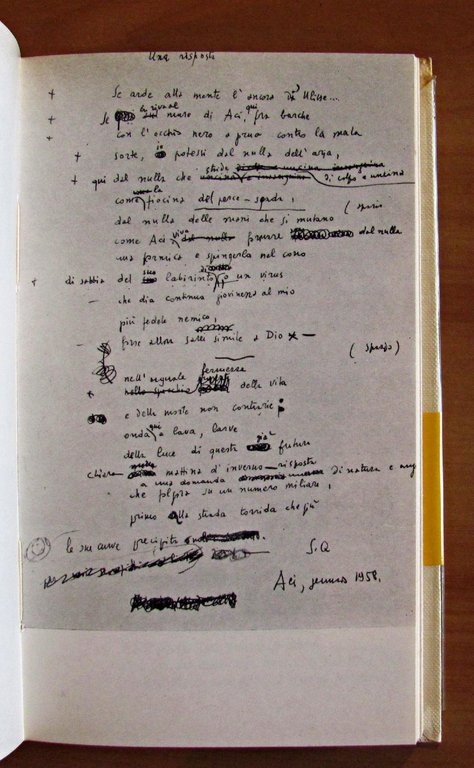 Una risposta
+ Se arde alla mente l'ancora di Ulisse...
+ Se a riva al mare di Aci, qui fra barche
+ con l'occhio nero a prua contro la mala
+ sorte, io potessi dal nulla dell'aria,
+ qui dal nulla che stride di colpo e uncina
come la fiocina del pesce-spada,
(spazio
dal nulla delle mani che si mutano
come Aci, viva formare dal nulla
una formica e spingerla nel cono
+ di sabbia del suo labirinto o un virus
— che dia continua giovinezza al mio
più fedele nemico,
— forse allora sarei simile a Dio —
(spazio)
nell'uguale fermezza
+ nello specchio della vita
e della morte non contrarie:
onda qui e lava, larve
della luce di questa già futura
chiara mattina d'inverno — risposta
a una domanda di natura e ang
che su un numero miliare,
primo alla strada torrida che più
le sue curve precipita
S.Q
Aci, gennaio 1958.